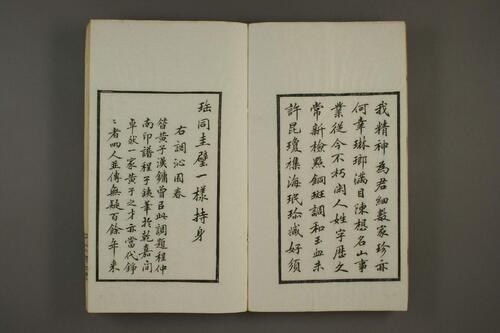 我精神為君細數家珍亦
何幸琳瑯滿目陳想名山事
業從今不朽閑人姓字歷久
常新檢點銅斑調和玉血未
許昆瓊襍海珉珍藏好須
珤同圭璧一樣持身
右調沁園春
昔黃子漢鏞曾㠯此調題程仲
南印譜程子鐵華於乾嘉間
卓然一家黃子之才亦當代錚
錚者四人並傳無疑百餘年來